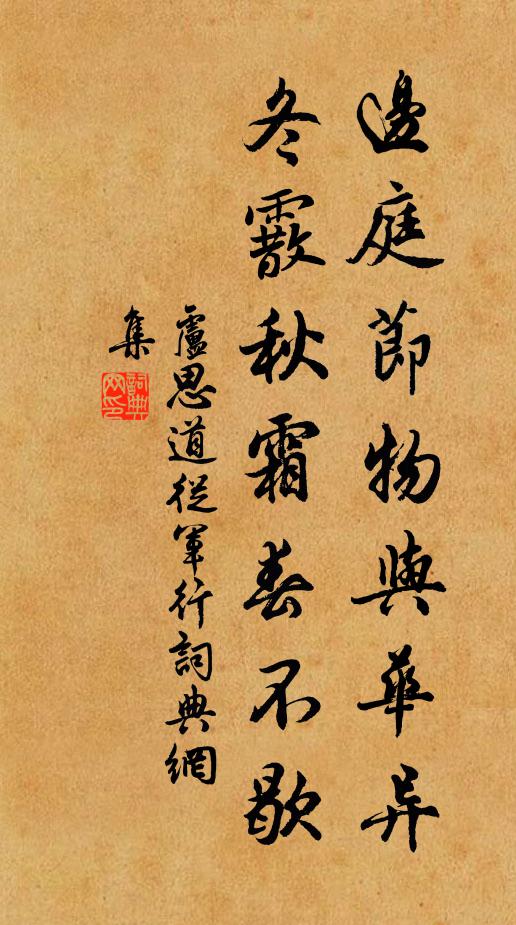 邊庭節物與華异
冬霰秋霜春不歇
盧思道從軍行詞典網
集
詞典
网印